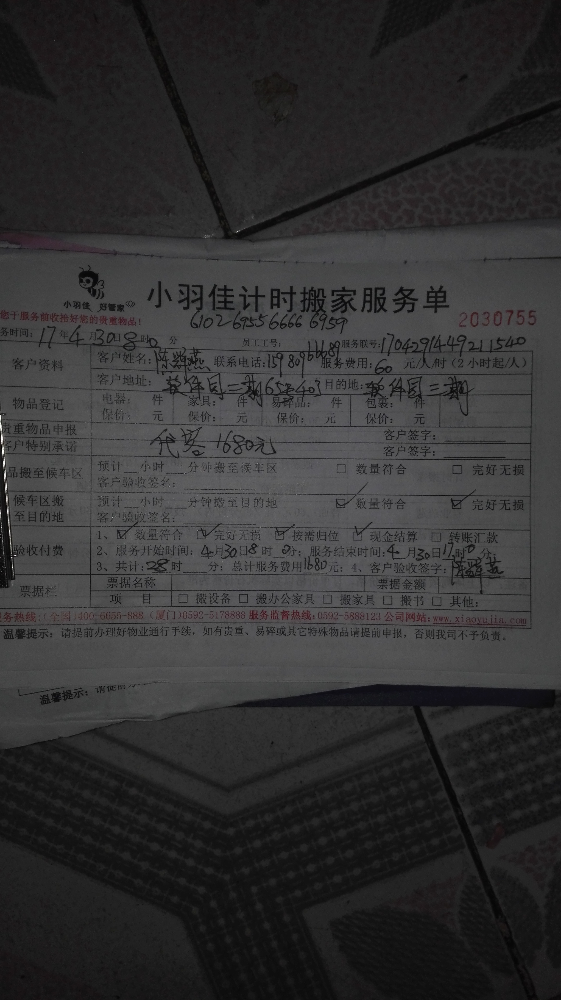 小羽佳 好管家
小羽佳计时搬家服务单
您于服务前收拾好您的贵重物品!
6102 6955 6666 6959
2030755
务时间: 17年4月30日8时0分 员工工号: 服务联号: 1704291449211540
客户资料 客户姓名: 联系电话: 服务费用: 60 元/人/时 (2小时起/人)
客户地址: 软件园二期 目的地: 软件园三期
物品登记 电器: 件 家具: 件 易碎品: 件 包装: 件
保价: 元 保价: 元 保价: 元 保价: 元
贵重物品申报 客户签字:
客户特别承诺 1680元 客户签字:
品搬至候车区 预计 小时 分钟搬至候车区 □ 数量符合 □ 完好无损
客户验收签名:
候车区搬至目的地 预计 小时 分钟搬至目的地 ☑ 数量符合 ☑ 完好无损
客户验收签名:
验收付费 1、☑ 数量符合 ☑ 完好无损 ☑ 按需归位 ☑ 现金结算 □ 转账汇款
2、服务开始时间: 4月30日8时0分; 服务结束时间: 4月30日17时0分
3、共计: 28时 分; 总计服务费用1680元; 4、客户验收签字:
票据栏 票据名称 票据金额
项 目 □ 搬设备 □ 搬办公家具 □ 搬家具 □ 搬书 □ 其他:
务热线: (全国)400-6655-888 (厦门)0592-5178888 服务监督热线: 0592-5888123 公司网站: www.xiaoyujia.com
温馨提示: 请提前办理好物业通行手续, 如有贵重、易碎或其它特殊物品请提前申报, 否则我司不予负责。
温馨提示: 请提前